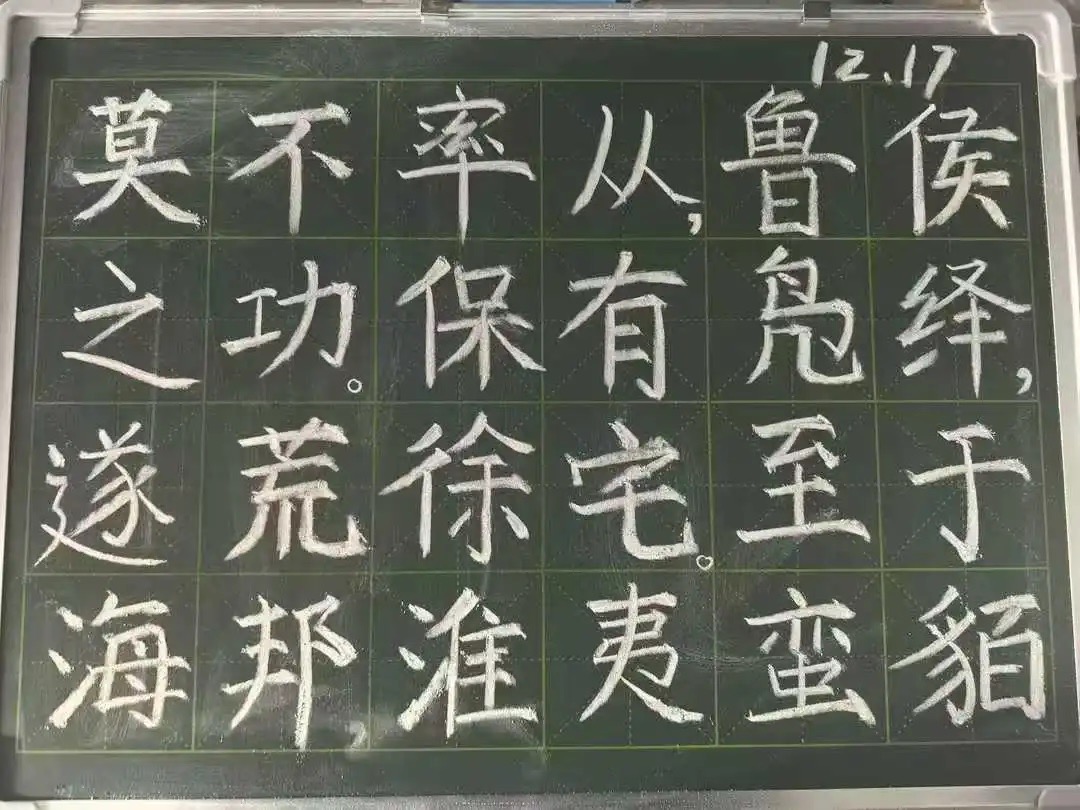 12.17
莫不率从,鲁侯
之功。保有凫绎,
遂荒徐宅。至于
海邦,淮夷蛮貊